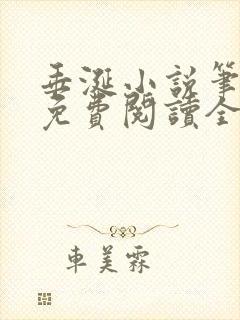 垂涎小説筆
免費閱讀全
車美霖